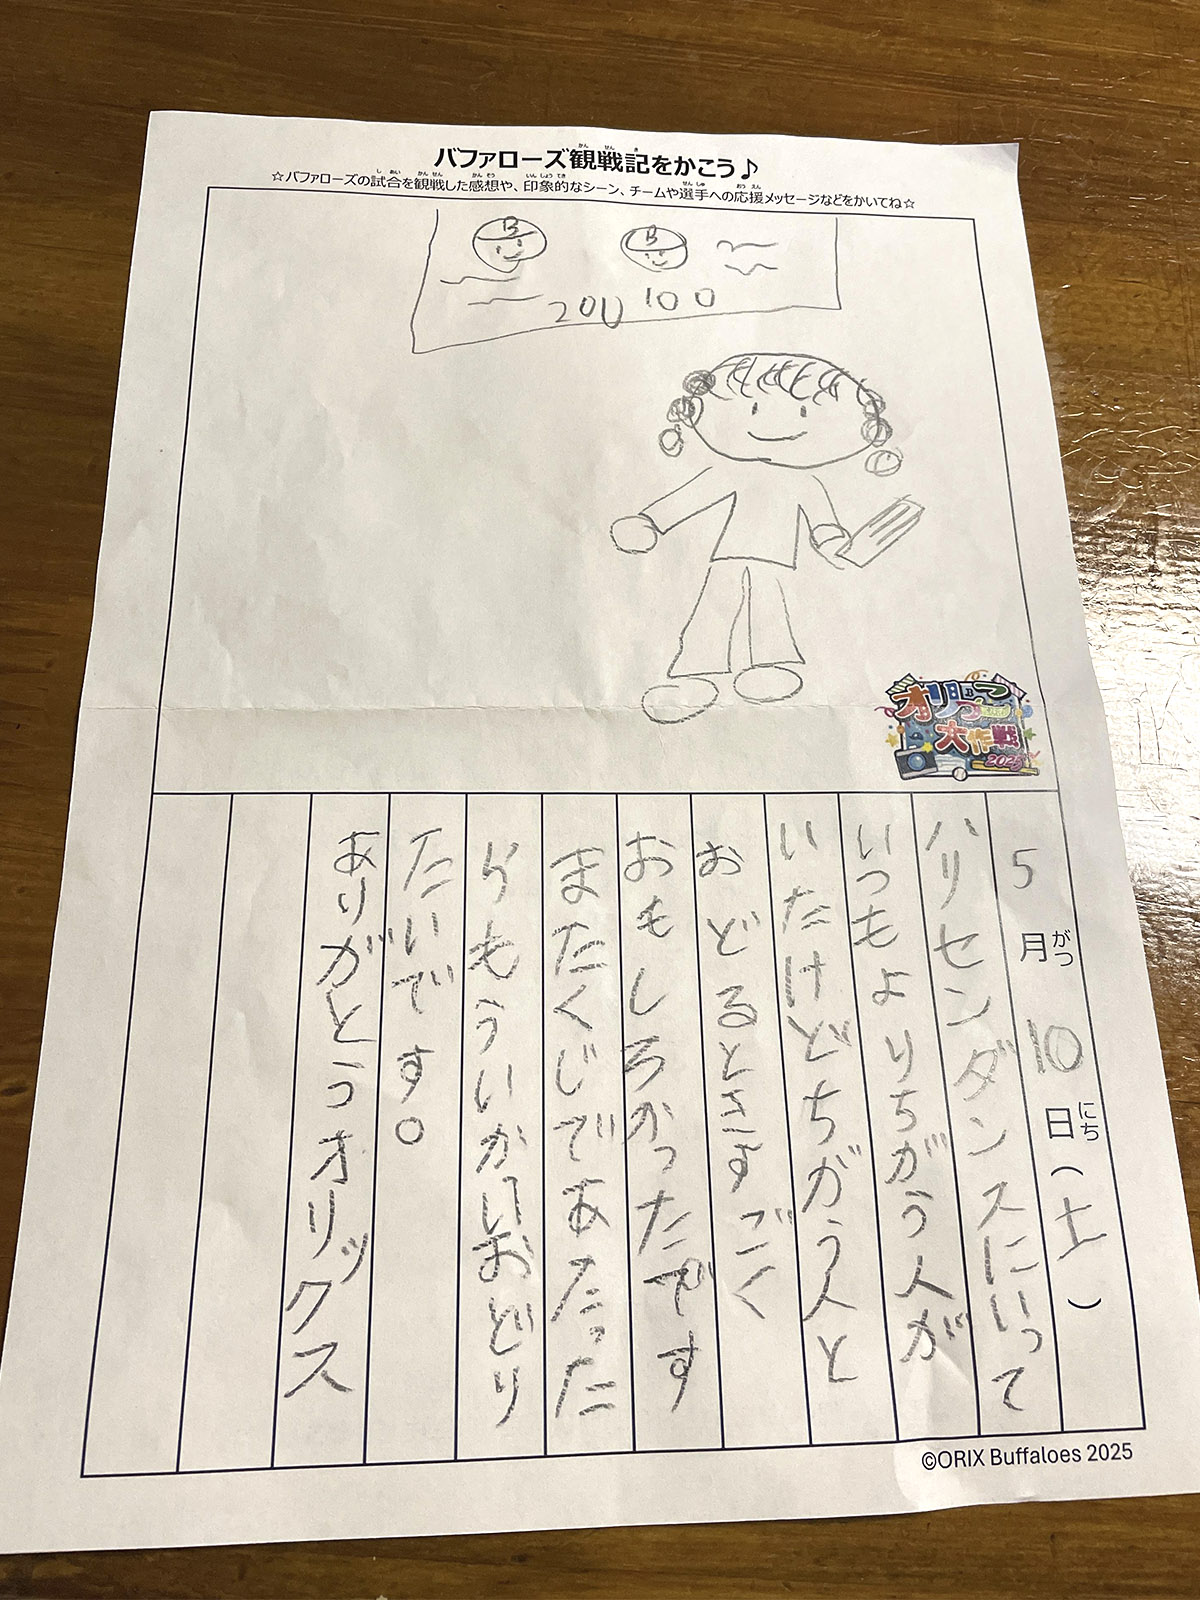 バファローズ観戦記をかこう♪
☆バファローズの試合を観戦した感想や、印象的なシーン、チームや選手への応援メッセージなどをかいてね☆
B
B
200 100
オリっこ
大作戦
2025
5月10日(土)
ハリセンダンスにいって
いつもよりちがう人が
いたけどちがう人と
おどるときすごく
おもしろかったです
またくじであたった
らもういっかいおどり
たいです。
ありがとうオリックス
©ORIX Buffaloes 2025